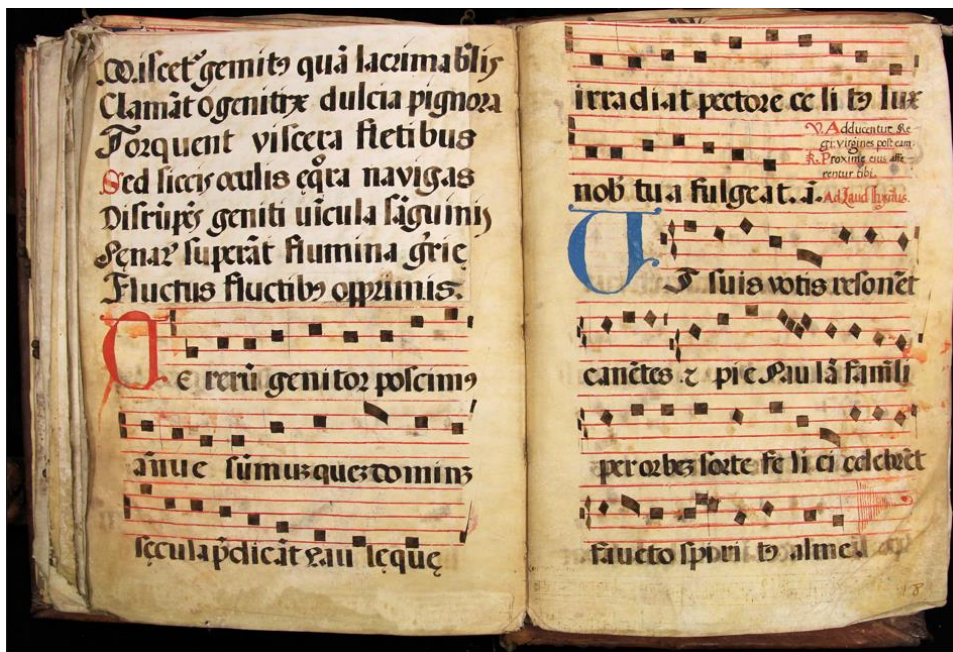 Miscet᷒ gemitꝰ quā lacrimabl̄is
Clamāt o genitrix dulcia pignora
Torquent viscera fletibus
Sed siccis oculis eq̄ra navigas
Disrūpēs geniti uīcula sāguinis
Penaꝝ superāt flumina grīe
Fluctus fluctibꝰ opprimis.
Te rerū genitor poscimꝰ
ānue sūmus quez dominꝫ
sęcula p̄dicāt Paulęque
irradiat pectore celitꝰ lux
nob̄ tua fulgeat. ā.
℣. Adducentur Re-
gi virgines post eam.
℟. Proxime eius affe-
rentur tibi.
Ad Laud hyīnus.
UT suis votis resonēt
canētes ⁊ pie Paulā famuli
per orbez sorte felici celebrēt
faucto spiritꝰ almeā
18